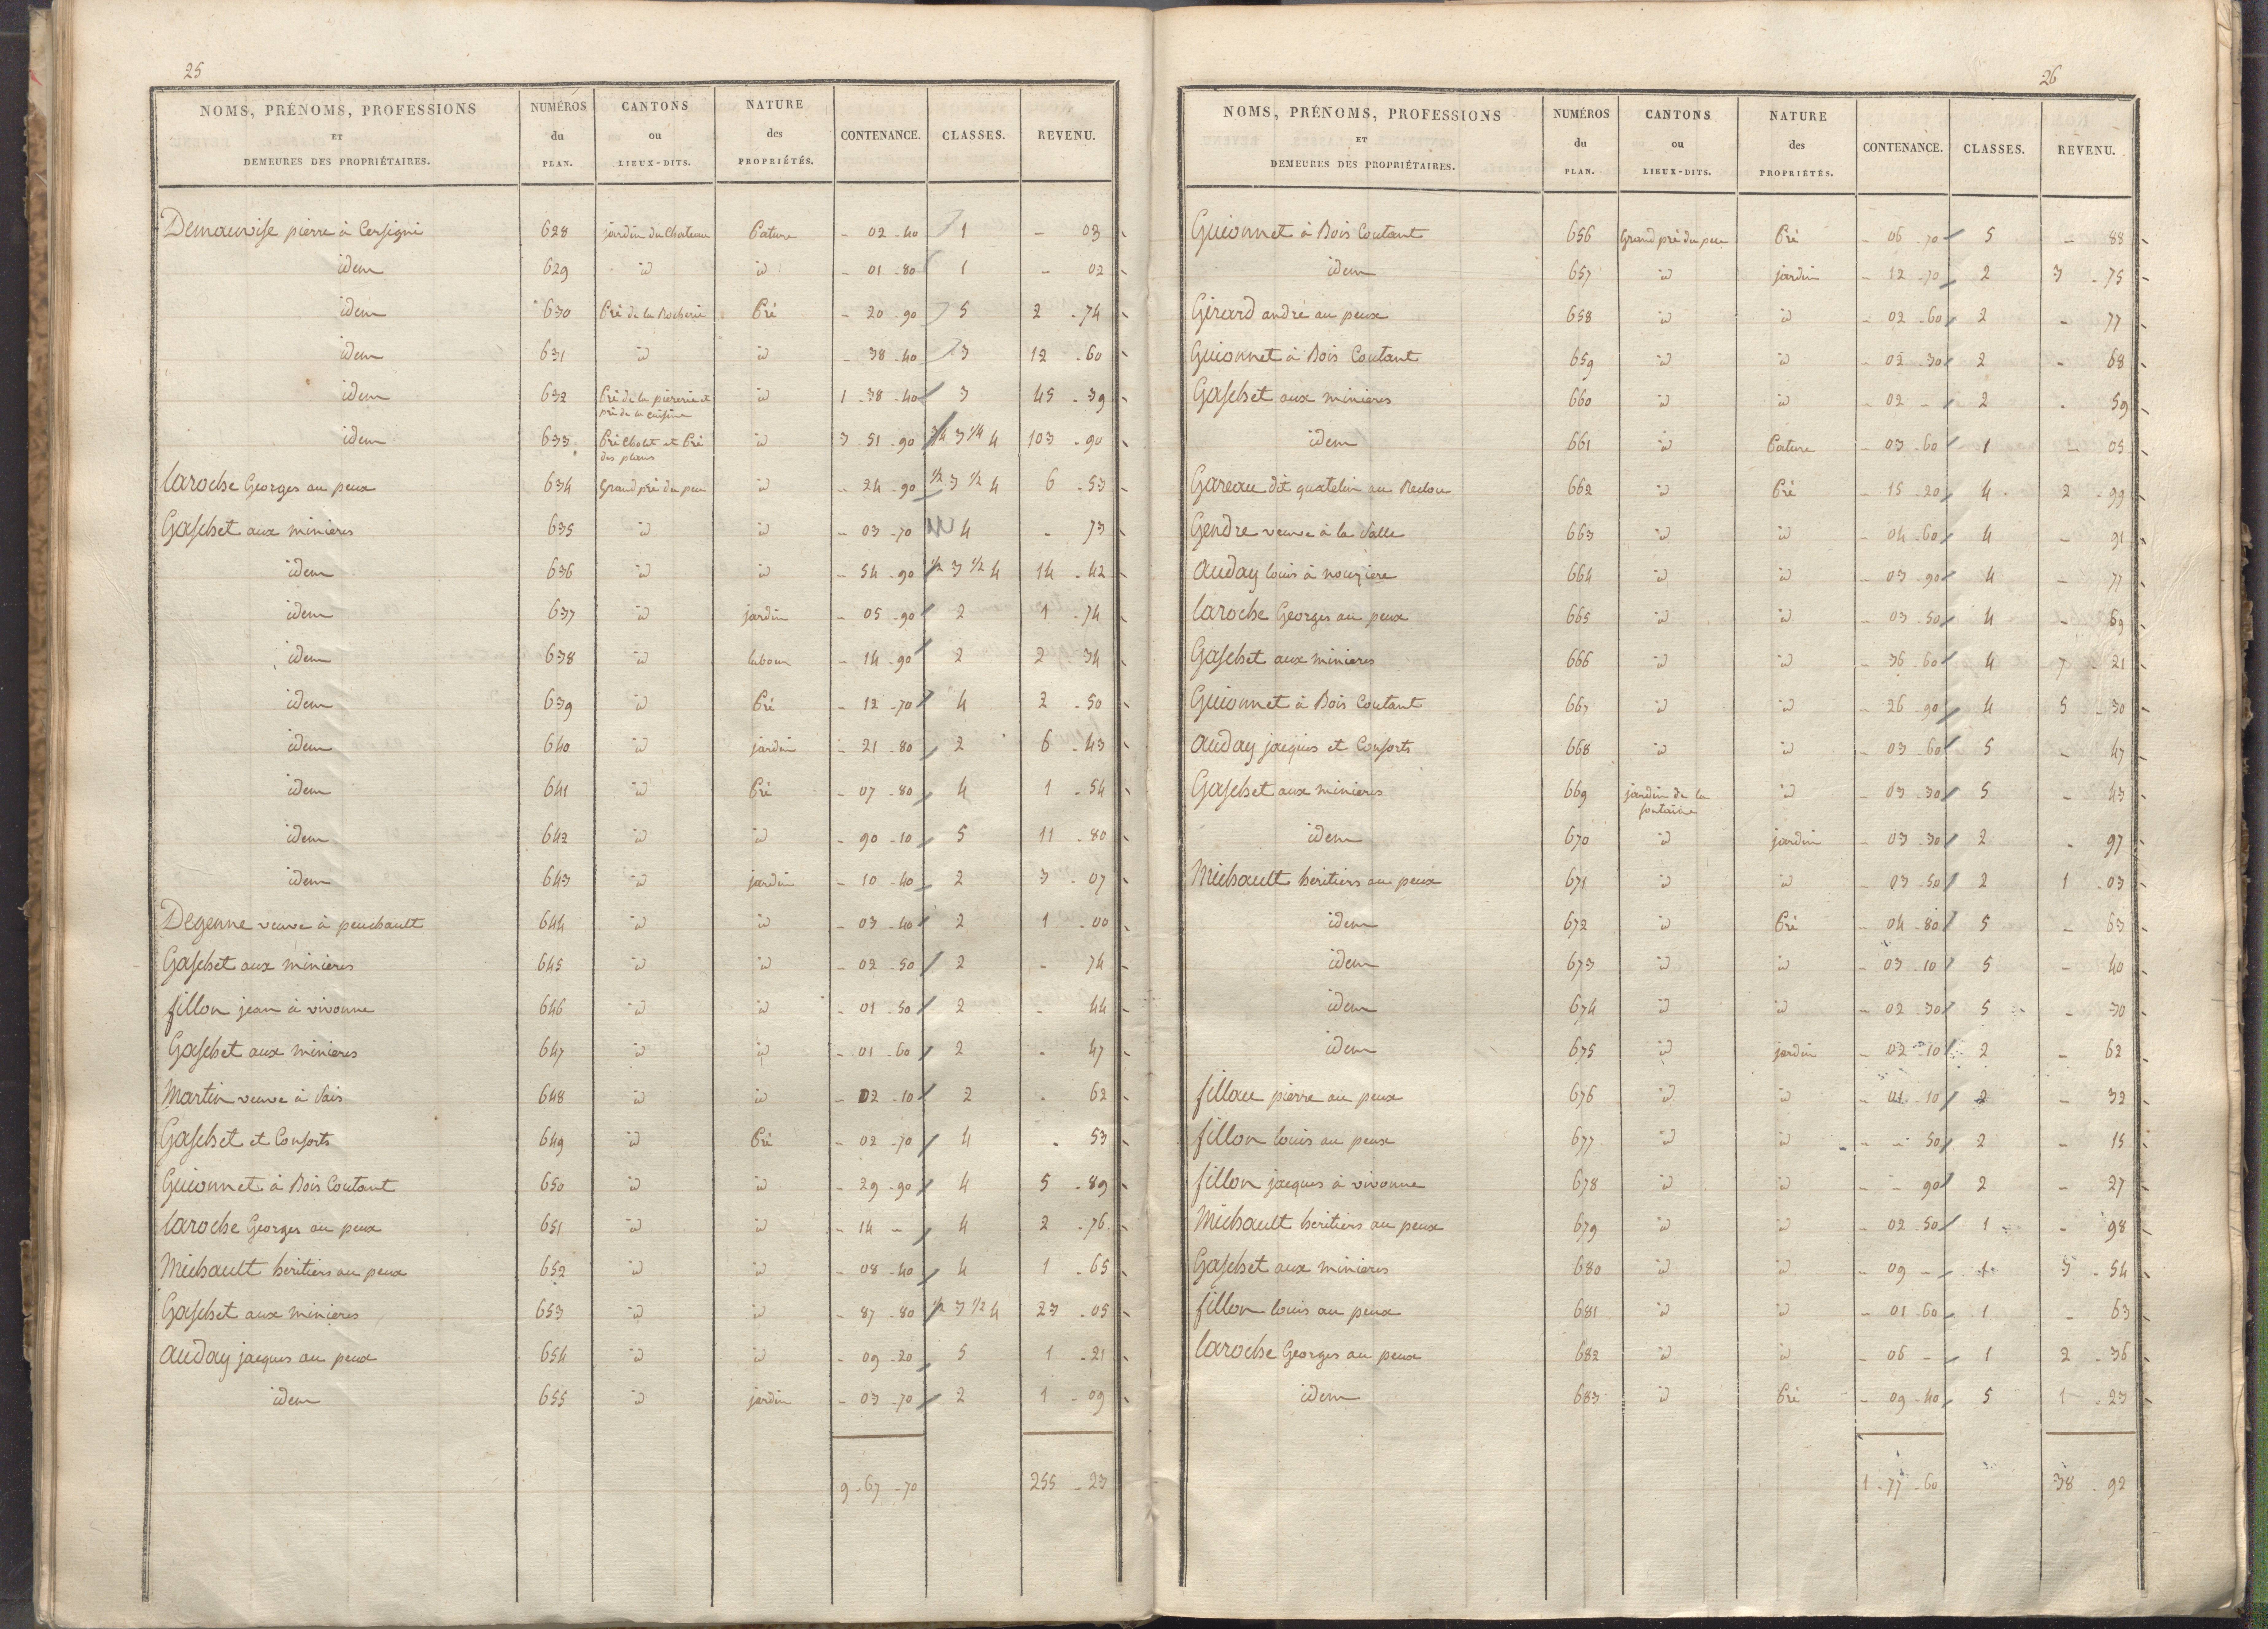 25
NOMS, PRÉNOMS, PROFESSIONS ET DEMEURES DES PROPRIÉTAIRES. NUMÉROS du PLAN. CANTONS ou LIEUX-DITS. NATURE des PROPRIÉTÉS. CONTENANCE. CLASSES. REVENU.
Demauvise pierre à Cersigni 628 jardin du Chateau Pature - 02 - 40 1 - 03
idem 629 id id - 01 - 80 1 - 02
idem 630 Pré de la Rocherie Pré - 20 - 90 5 2 - 74
idem 631 id id - 38 - 40 3 12 - 60
idem 632 Pré de la piererie et pré de la cuisine id 1 - 38 - 40 3 45 - 39
idem 633 Pré Cholet et Pré des plans id 3 51 - 90 3/4 3 1/4 4 103 - 90
laroche Georges au peux 634 Grand pré du peu id - 24 - 90 1/2 3 1/2 4 6 - 53
Gaschet aux minieres 635 id id - 03 - 70 4 - 73
idem 636 id id - 54 - 90 1/2 3 1/2 4 14 - 42
idem 637 id jardin - 05 - 90 2 1 - 74
idem 638 id labour - 14 - 90 2 2 - 34
idem 639 id Pré - 12 - 70 4 2 - 50
idem 640 id jardin - 21 - 80 2 6 - 43
idem 641 id Pré - 07 - 80 4 1 - 54
idem 642 id id - 90 - 10 5 11 - 80
idem 643 id jardin - 10 - 40 2 3 - 07
Degenne veuve à peuchault 644 id id - 03 - 40 2 1 - 00
Gaschet aux minieres 645 id id - 02 - 50 2 - 74
fillon jean à vivonne 646 id id - 01 - 50 2 - 44
Gaschet aux minieres 647 id id - 01 - 60 2 - 47
Martin veuve à Vais 648 id id - 02 - 10 2 - 62
Gaschet et Consorts 649 id Pré - 02 - 70 4 - 53
Guionnet à Bois Coutant 650 id id - 29 - 90 4 5 - 89
laroche Georges au peux 651 id id - 14 - 4 2 - 76
Michault heritiers au peux 652 id id - 08 - 40 4 1 - 65
Gaschet aux minieres 653 id id - 87 - 80 1/2 3 1/2 4 23 - 05
auday jacques au peux 654 id id - 09 - 20 5 1 - 21
idem 655 id jardin - 03 - 70 2 1 - 09
9 - 67 - 70 255 - 23
26
NOMS, PRÉNOMS, PROFESSIONS ET DEMEURES DES PROPRIÉTAIRES. NUMÉROS du PLAN. CANTONS ou LIEUX-DITS. NATURE des PROPRIÉTÉS. CONTENANCE. CLASSES. REVENU.
Guionnet à Bois Coutant 656 Grand pré du peu Pré - 06 - 70 5 - 88
idem 657 id jardin - 12 - 70 2 3 - 75
Girard andré au peux 658 id id - 02 - 60 2 - 77
Guionnet à Bois Coutant 659 id id - 02 - 30 2 - 68
Gaschet aux minieres 660 id id - 02 - 2 - 59
idem 661 id Pature - 03 - 60 1 - 05
Gareau dit quatelin au 662 id Pré - 15 - 20 4 2 - 99
Gendre veuve à la Valle 663 id id - 04 - 60 4 - 91
auday louis à nouziere 664 id id - 03 - 90 4 - 77
laroche Georges au peux 665 id id - 03 - 50 4 - 69
Gaschet aux minieres 666 id id - 36 - 60 4 7 - 21
Guionnet à Bois Coutant 667 id id - 26 - 90 4 5 - 30
auday jacques et Consorts 668 id id - 03 - 60 5 - 47
Gaschet aux minieres 669 jardin de la fontaine id - 03 - 30 5 - 43
idem 670 id jardin - 03 - 30 2 - 97
Michault heritiers au peux 671 id id - 03 - 50 2 1 - 03
idem 672 id Pré - 04 - 80 5 - 63
idem 673 id id - 03 - 10 5 - 40
idem 674 id id - 02 - 30 5 - 30
idem 675 id jardin - 02 - 10 2 - 62
fillau pierre au peux 676 id id - 01 - 10 2 - 32
fillon louis au peux 677 id id - - 50 2 - 15
fillon jacques à vivonne 678 id id - - 90 2 - 27
Michault heritiers au peux 679 id id - 02 - 50 1 - 98
Gaschet aux minieres 680 id id - 09 - 1 3 - 54
fillon louis au peux 681 id id - 01 - 60 1 - 63
laroche Georges au peux 682 id id - 06 - 1 2 - 36
idem 683 id Pré - 09 - 40 5 1 - 23
1 - 77 - 60 38 - 92